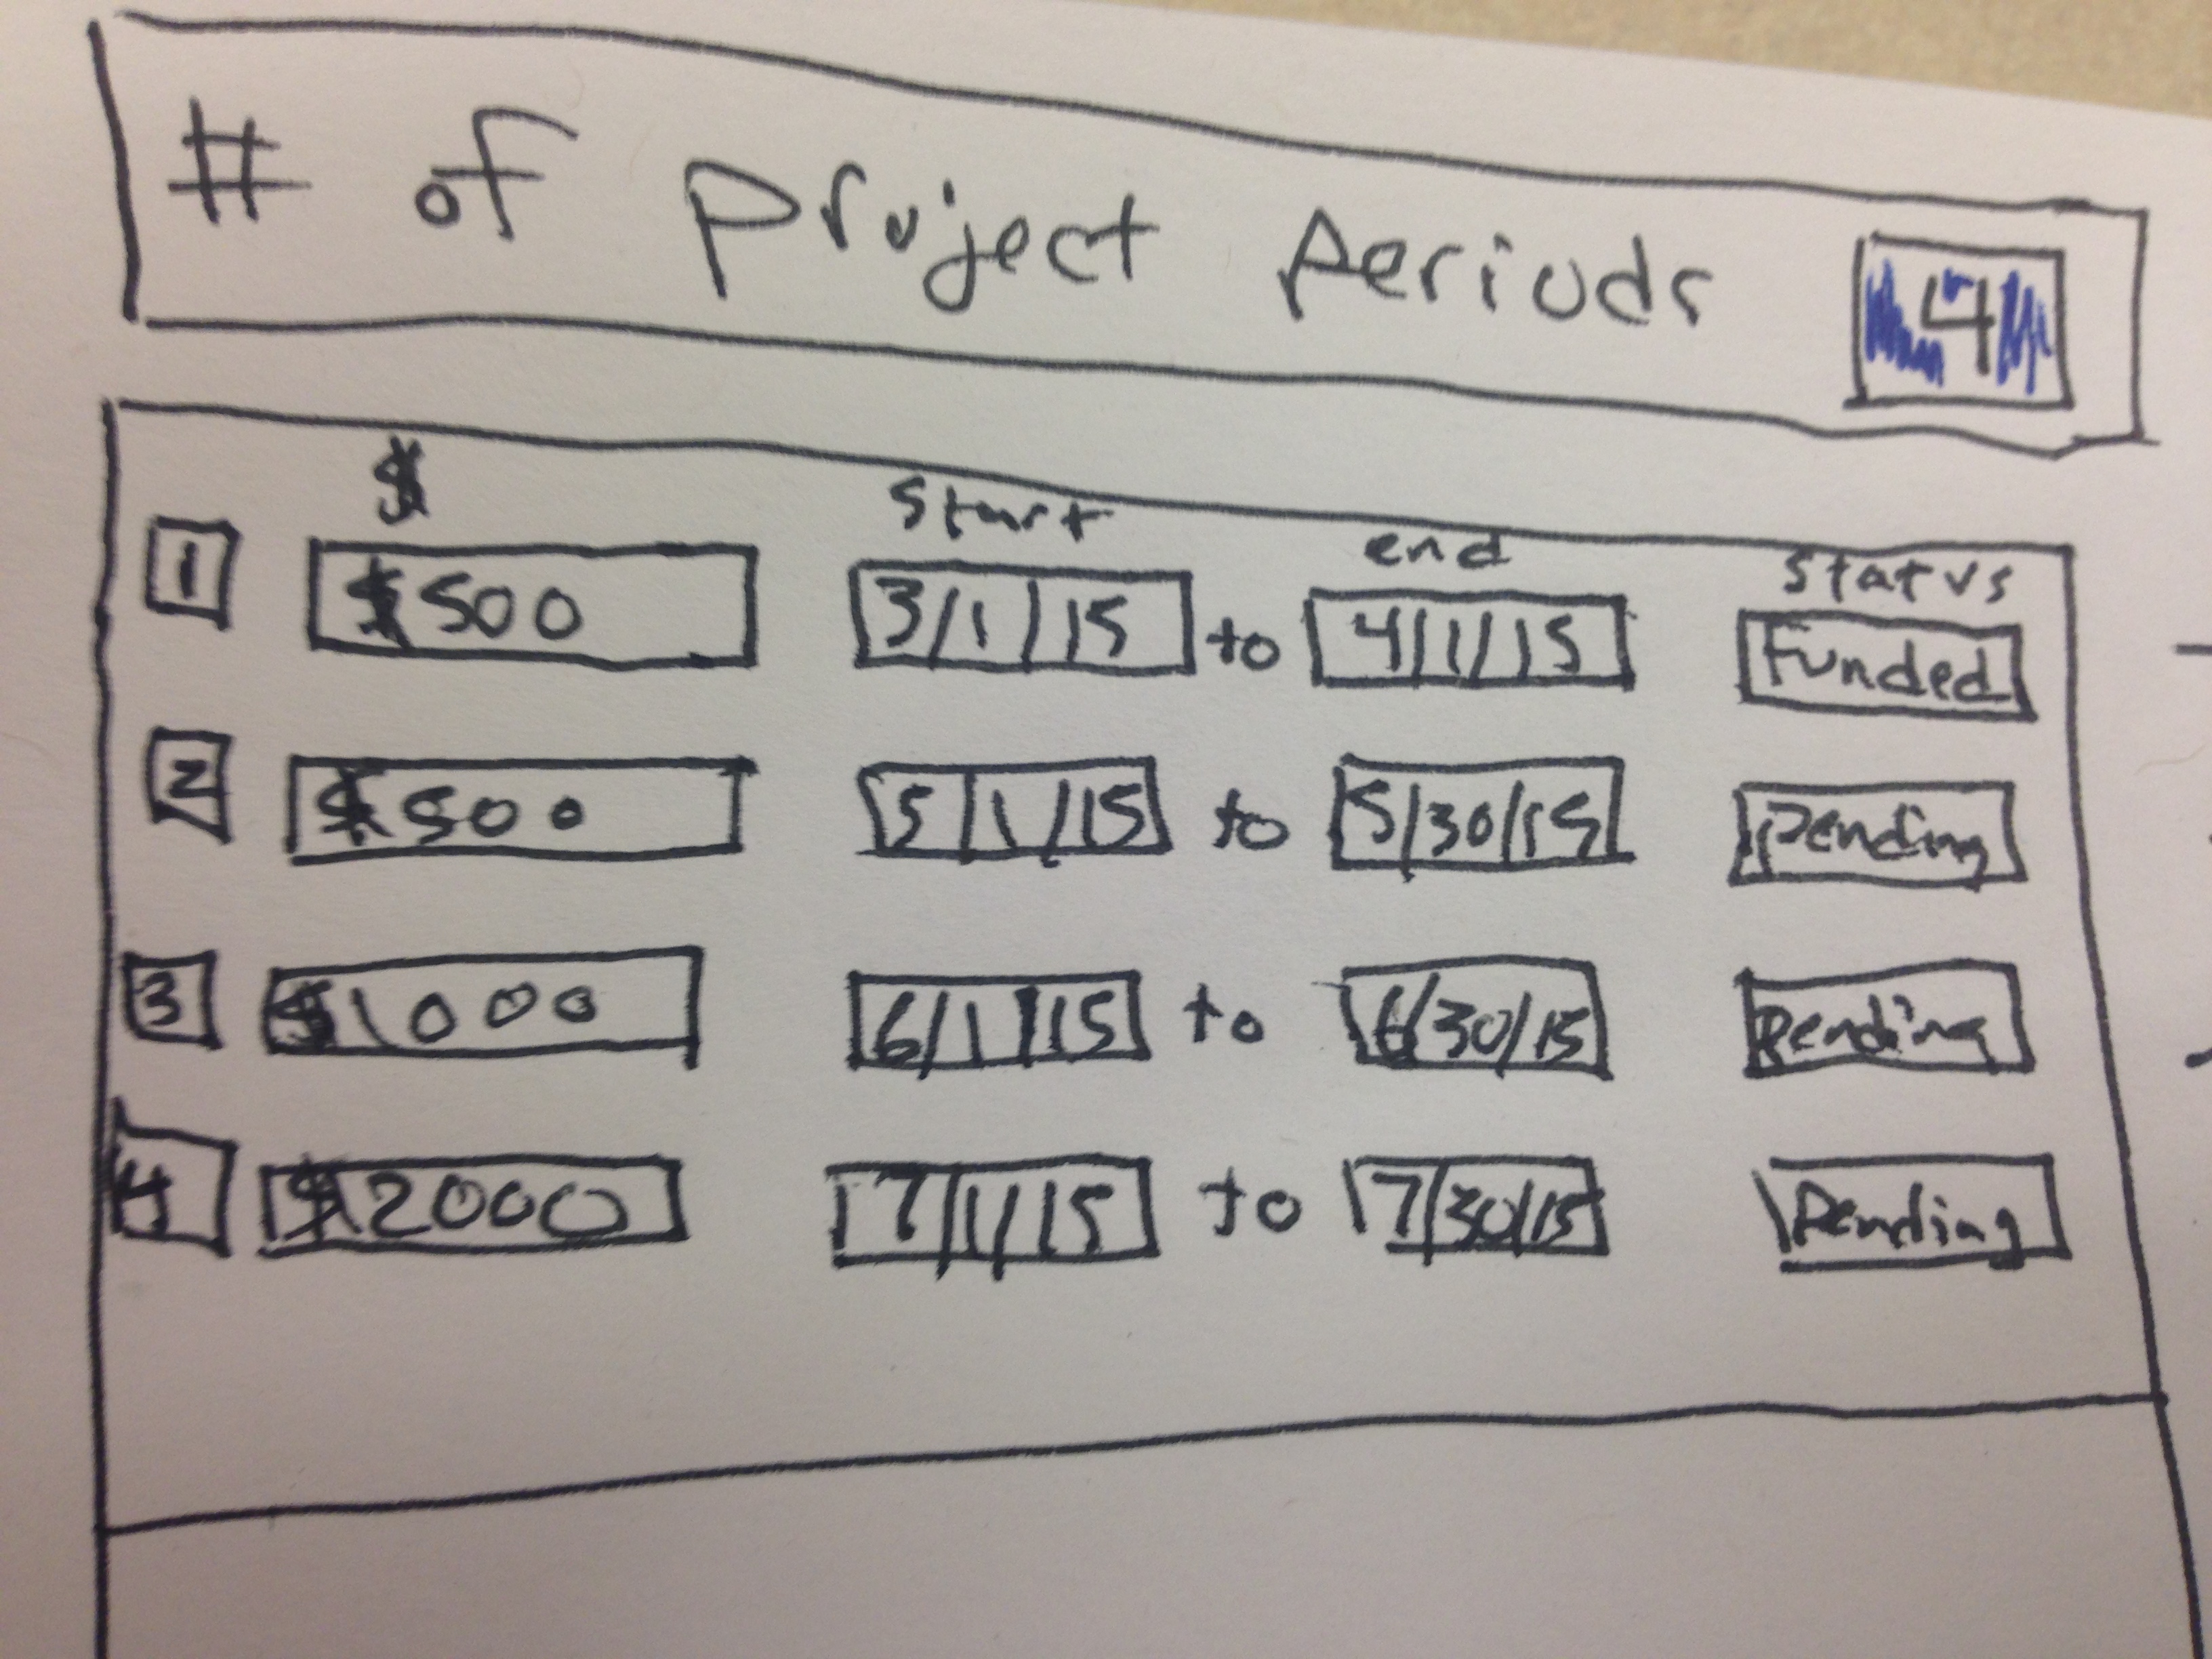 # of Project Periods 4
$ Start end Status
1 $500 3/1/15 to 4/1/15 Funded
2 $500 5/1/15 to 5/30/15 Pending
3 $1000 6/1/15 to 6/30/15 Pending
4 $2000 7/1/15 to 7/30/15 Pending